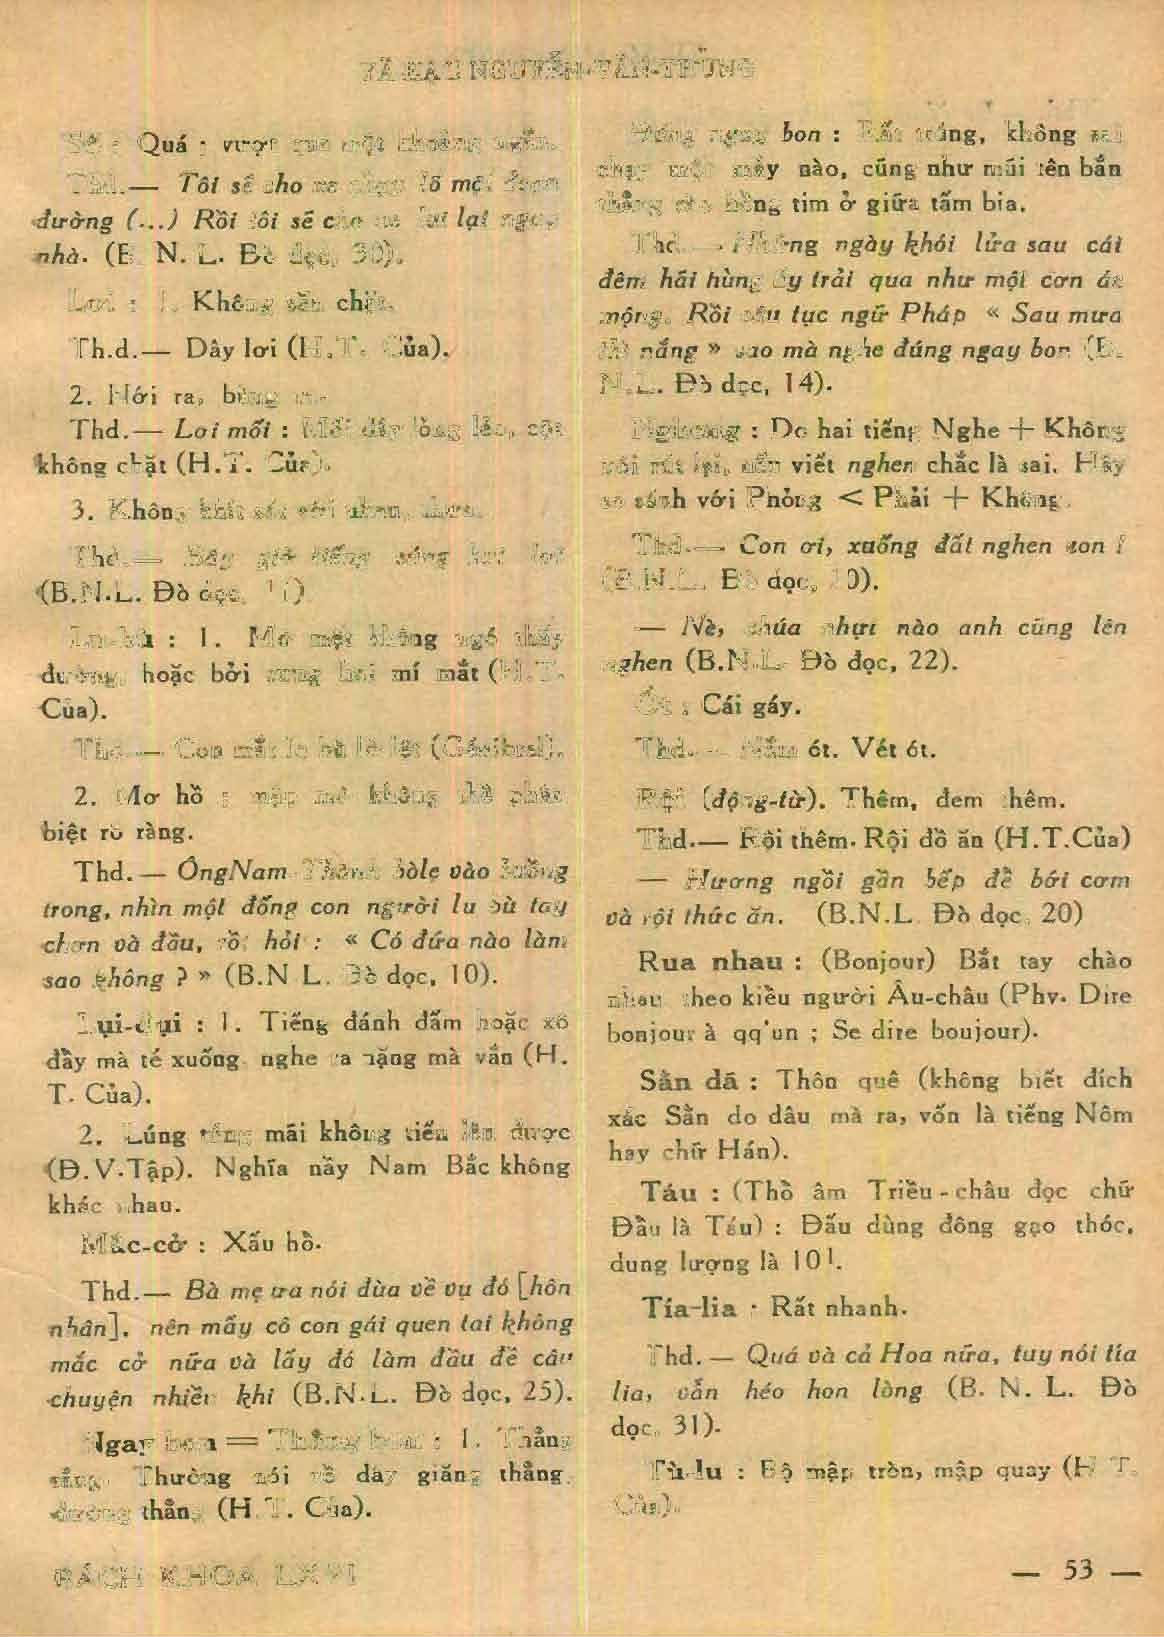 TẠ HẠC NGUYỄN-VĂN-TRÙNG
: Quá ; vượt qua một khoảng ngắn.
Thd.— Tôi sẽ cho xe chạy lố một đoạn
đường (...) Rồi tôi sẽ cho xe lui lại ngay
nhà. (B. N. L. Đò dọc, 30).
Lơi : 1. Không săn chặt.
Th.d.— Dây lơi (H.T. Của).
2. Nới ra, buông ra.
Thd.— Lơi mối : Mối dây lỏng lẻo, cột
không chặt (H.T. Của).
3. Không khít sát với nhau, thưa.
Thd.— Bây giờ tiếng súng hơi lơi
(B.N.L. Đò dọc, 11)
Lu-bù : 1. Mơ mệt không ngó thấy
đường, hoặc bởi sưng hai mí mắt (H.T.
Của).
Thd.— Con mắt lu bù lờ lệt (Génibrel).
2. Mơ hồ ; mập mờ không thể phân
biệt rõ ràng.
Thd.— ÔngNam Thành bòlẹ vào buồng
trong, nhìn một đống con người lu bù tay
chơn và đầu, rồi hỏi : « Có đứa nào làm
sao không ? » (B.N L. Đò dọc, 10).
Lụi-đụi : 1. Tiếng đánh đấm hoặc xô
đẩy mà té xuống, nghe ra nặng mà vắn (H.
T. Của).
2. Lúng túng mãi không tiến lên được
(Đ.V.Tập). Nghĩa nầy Nam Bắc không
khác nhau.
Mắc-cở : Xấu hổ.
Thd.— Bà mẹ ưa nói đùa về vụ đó [hôn
nhân], nên mấy cô con gái quen tai không
mắc cở nữa và lấy đó làm đầu đề câu
chuyện nhiều khi (B.N.L. Đò dọc, 25).
Ngay bon = Thẳng bon : 1. Thẳng
rẳng. Thường nói về dây giăng thẳng,
đường thẳng (H.T. Của).
BÁCH KHOA LXVI
Đúng ngay bon : Rất trúng, không sai
chạy một mảy nào, cũng như mũi tên bắn
thẳng vào hồng tim ở giữa tấm bia.
Thd.— Những ngày khói lửa sau cái
đêm hãi hùng ấy trải qua như một cơn ác
mộng. Rồi câu tục ngữ Pháp « Sau mưa
thì nắng » sao mà nghe đúng ngay bon (B.
N.L. Đò dọc, 14).
Nghoong : Do hai tiếng Nghe + Không
nói rút lại, nên viết nghen chắc là sai. Hãy
so sánh với Phỏng < Phải + Không.
Thd.— Con ơi, xuống đất nghen con !
(B.N.L. Đò dọc, 10).
— Nè, chúa nhựt nào anh cũng lên
nghen (B.N.L. Đò đọc, 22).
Ót : Cái gáy.
Thd.— Nắm ót. Vét ót.
Rội (động-từ). Thêm, đem thêm.
Thd.— Rội thêm. Rội đồ ăn (H.T.Của)
— Hương ngồi gần bếp để bới cơm
và rội thức ăn. (B.N.L. Đò dọc, 20)
Rua nhau : (Bonjour) Bắt tay chào
nhau theo kiểu người Âu-châu (Phv. Dire
bonjour à qq'un ; Se dire boujour).
Sằn dã : Thôn quê (không biết đích
xác Sằn do đâu mà ra, vốn là tiếng Nôm
hay chữ Hán).
Táu : (Thổ âm Triều-châu đọc chữ
Đầu là Táu) : Đấu dùng đông gạo thóc,
dung lượng là 10l.
Tía-lia : Rất nhanh.
Thd.— Quá và cả Hoa nữa, tuy nói tía
lia, vẫn héo hon lòng (B. N. L. Đò
dọc, 31).
Tù-lu : Bộ mập tròn, mập quay (H T.
Của).
— 53 —